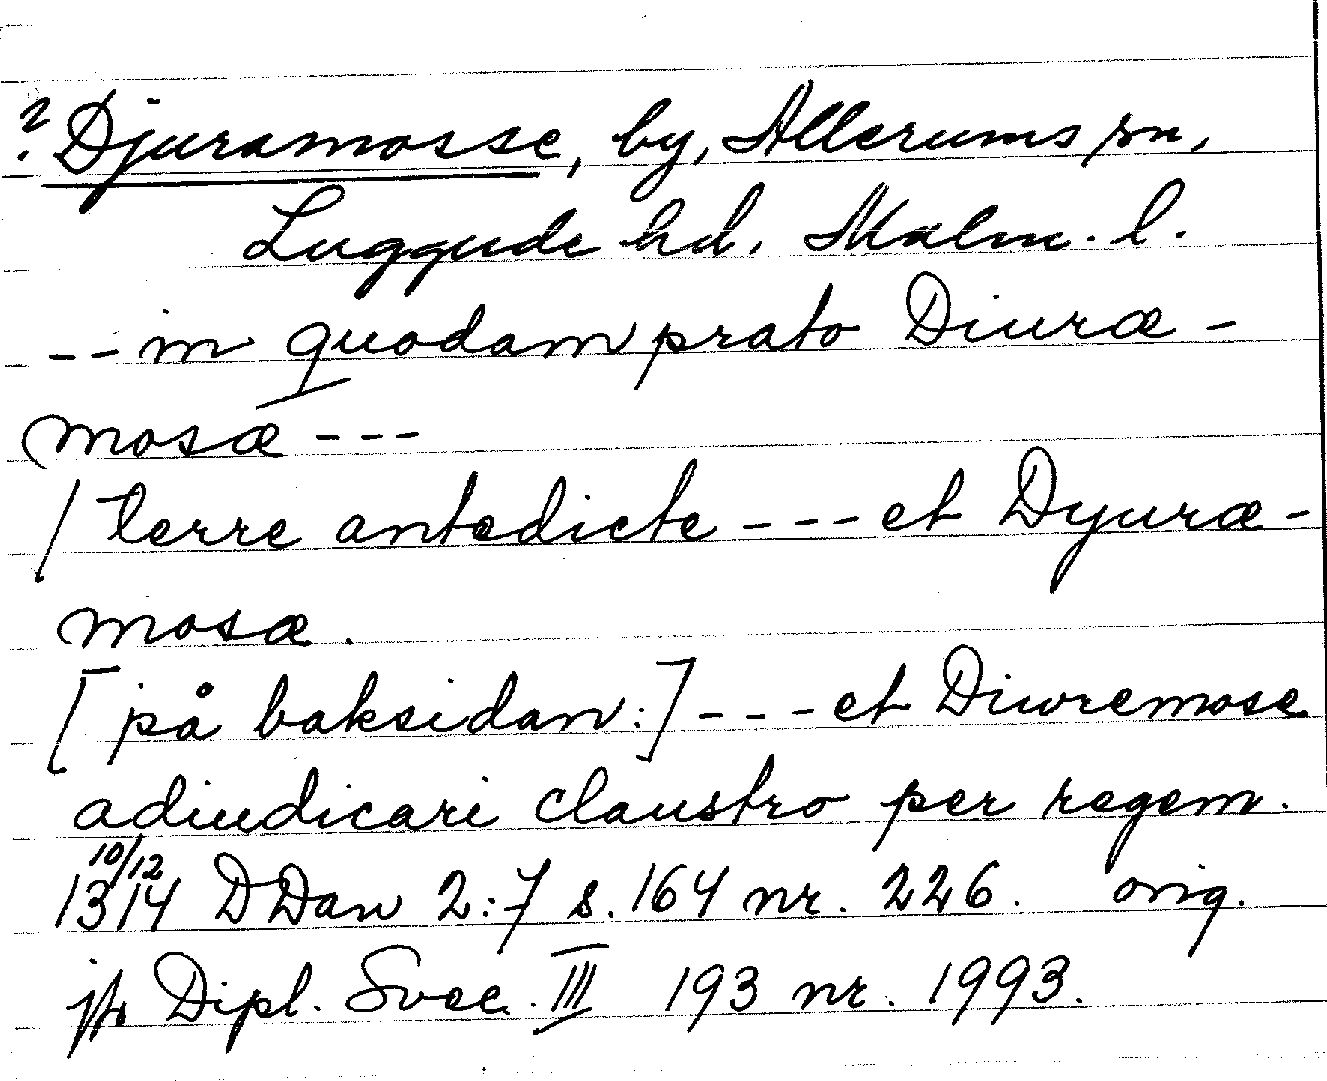 ? Djuramosse, by, Allerums sn,
Luggude hd. Malm. l.
-- in quodam prato Diuræ-
mosæ ---
/ terre antedicte --- et Dyuræ-
mosæ.
[på baksidan:] --- et Diuremose
adiudicari claustro per regem.
10/12
1314 DDan 2:7 s. 164 nr. 226. orig.
jfr Dipl. Svec. III 193 nr. 1993.